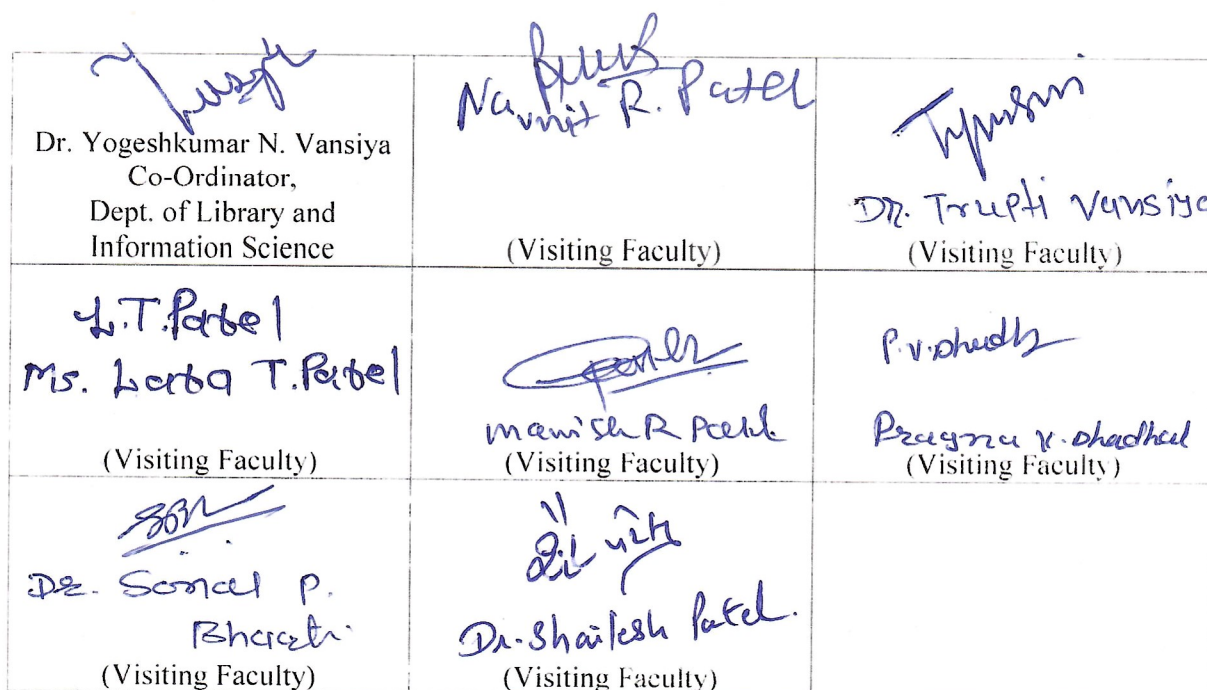 Dr. Yogeshkumar N. Vansiya
Co-Ordinator,
Dept. of Library and
Information Science
Navnit R. Patel
(Visiting Faculty)
Dr. Trupti Vansiya
(Visiting Faculty)
L.T.Patel
Ms. Lata T.Patel
(Visiting Faculty)
Manish R Patel
(Visiting Faculty)
Pragna V. Dhadhal
(Visiting Faculty)
Dr. Sonal P.
(Visiting Faculty)
Dr. Shailesh Patel.
(Visiting Faculty)